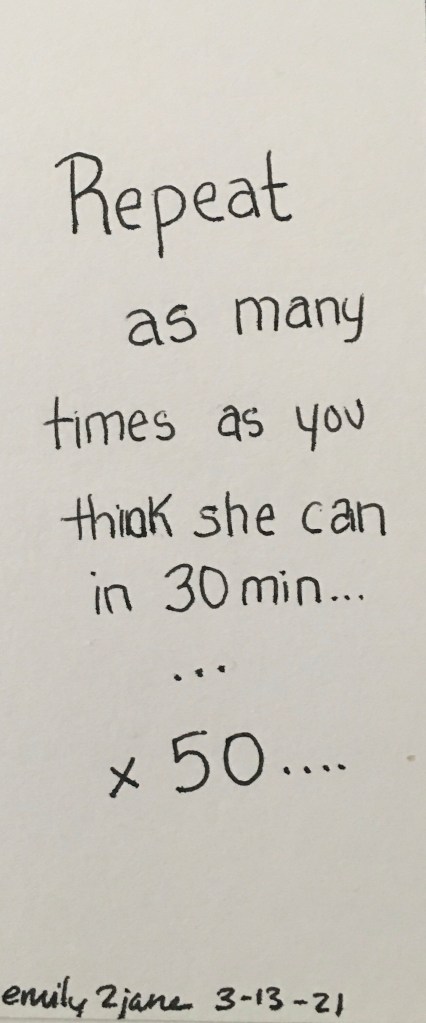 Repeat
as many
times as you
think she can
in 30 min...
...
x 50....
emily 2jane 3-13-21